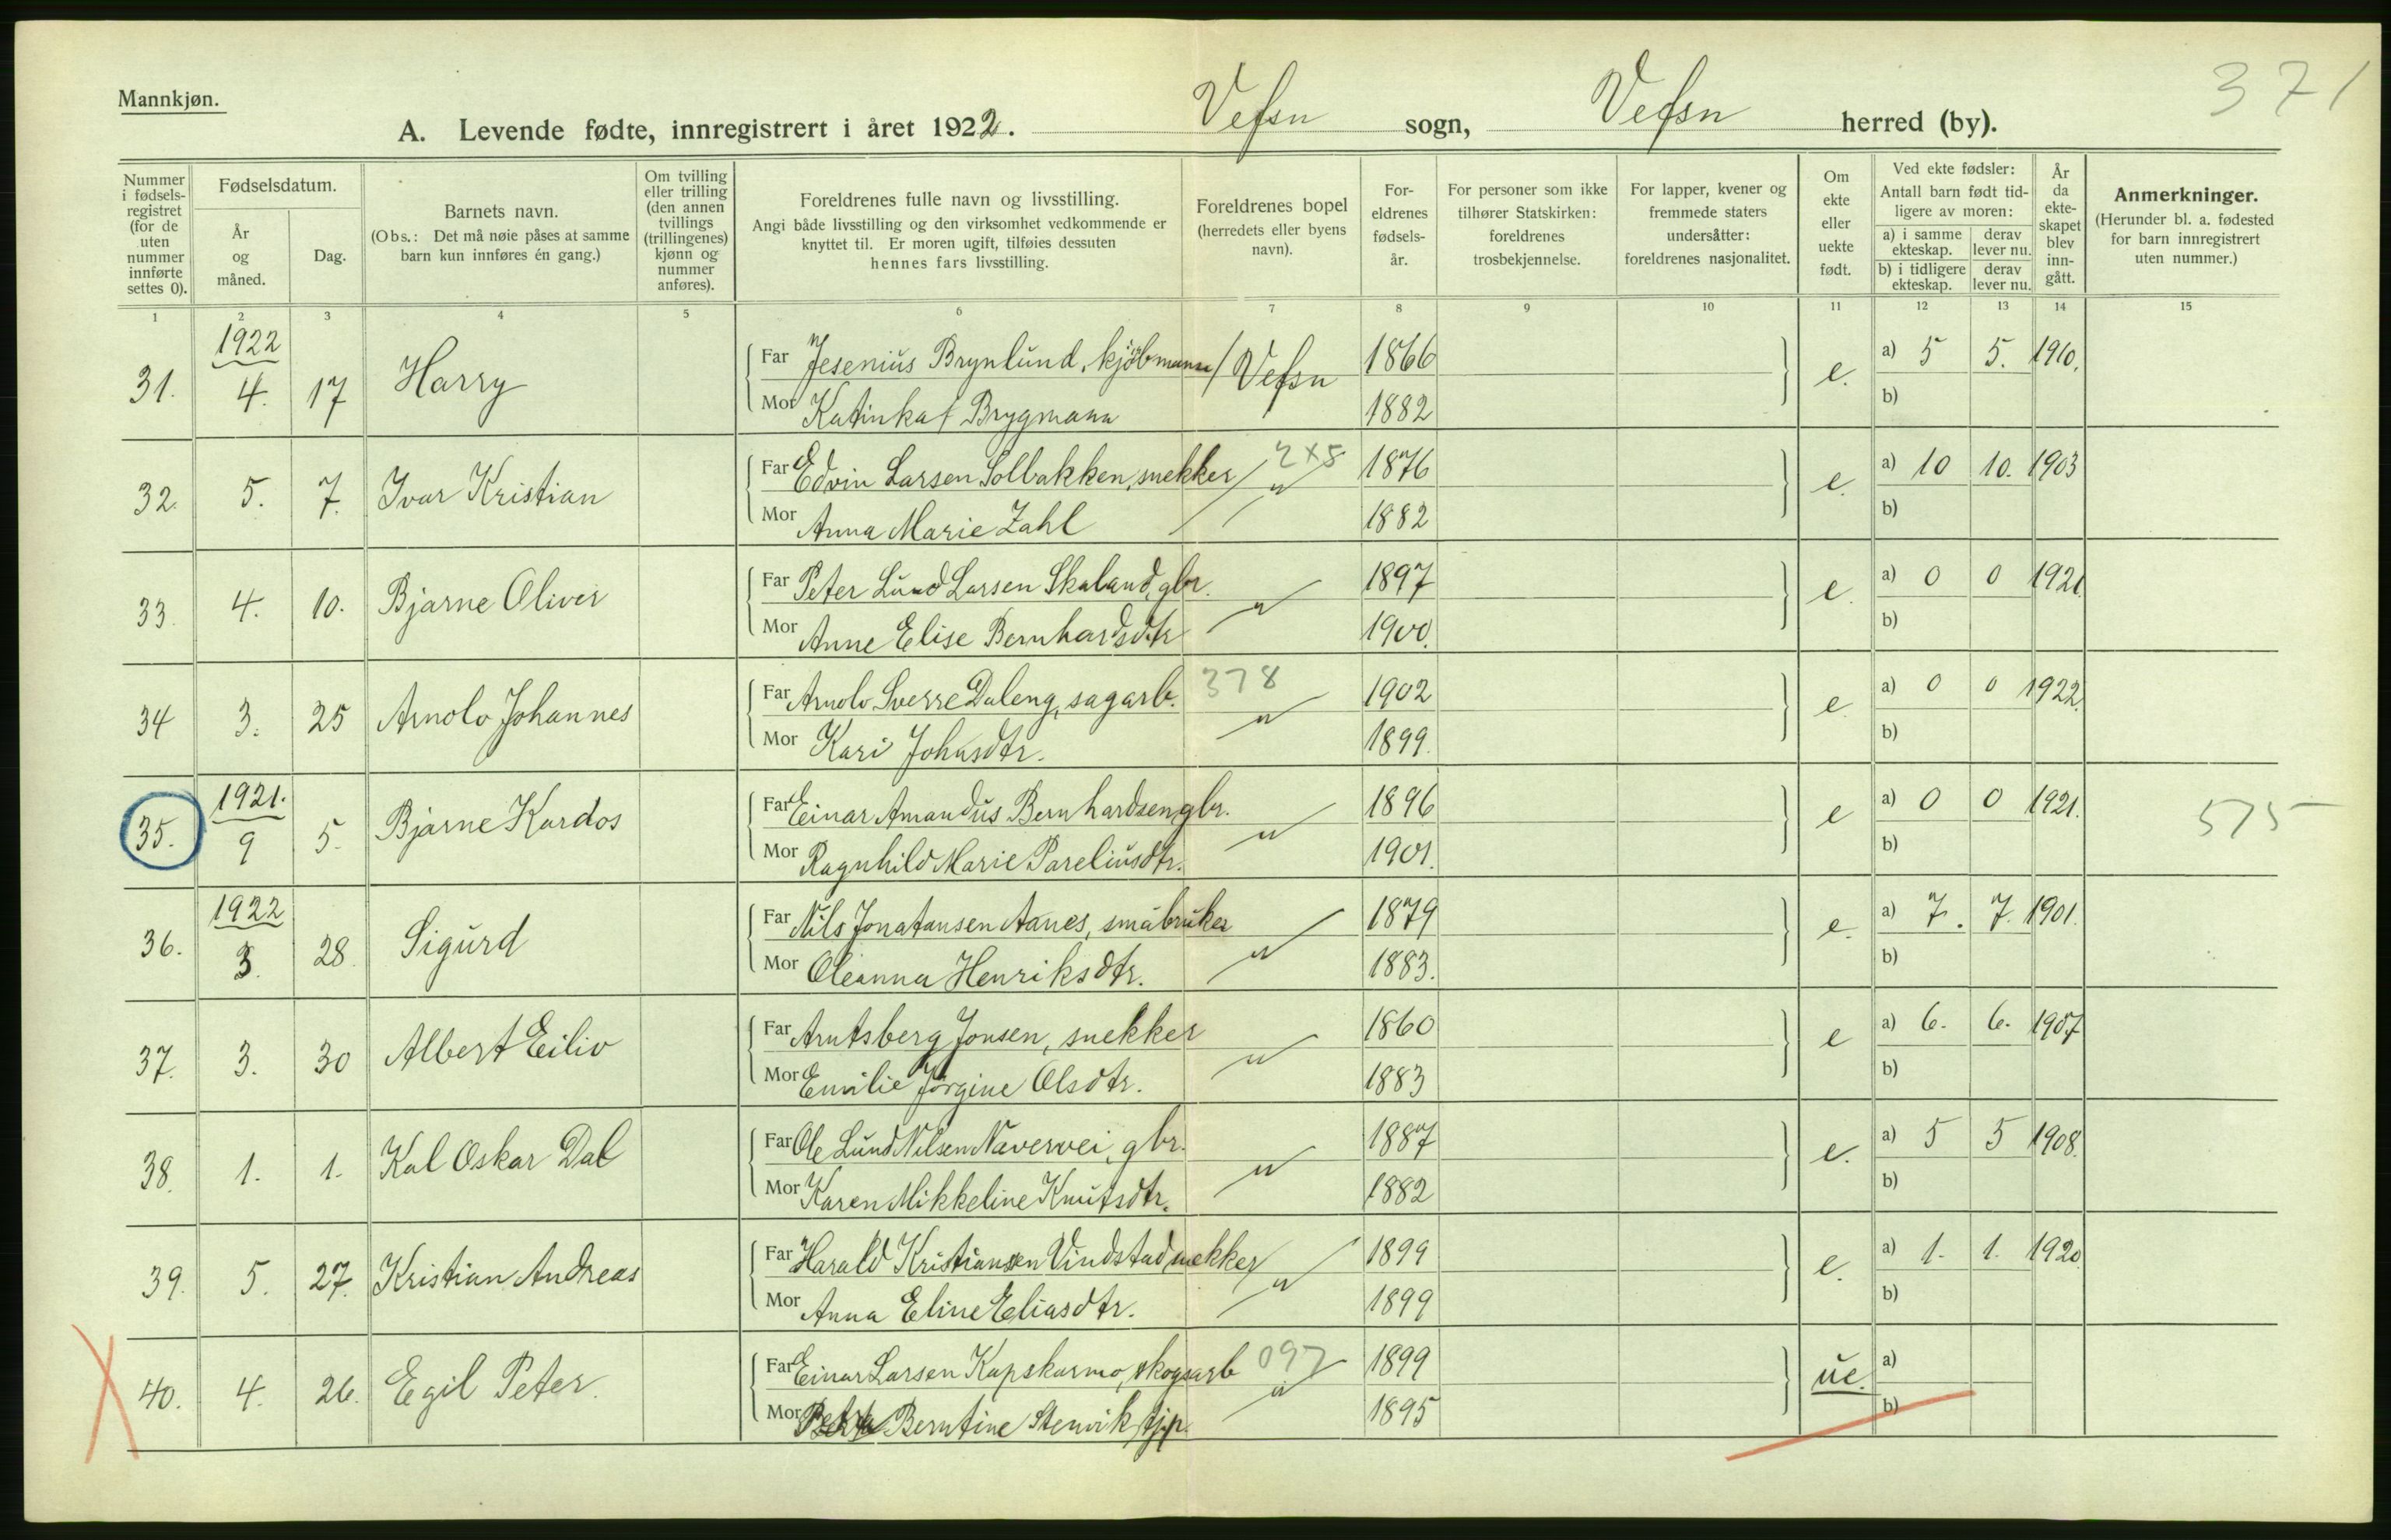 Mannkjøn.
371
A. Levende fødte, innregistrert i året 1922. Vefsn sogn, Vefsn herred (by).
Nummer i fødselsregistret (for de uten nummer innførte settes 0).
Fødselsdatum.
År og måned.
Dag.
Barnets navn.
(Obs.: Det må nøie påses at samme barn kun innføres én gang.)
Om tvilling eller trilling (den annen tvillings (trillingenes) kjønn og nummer anføres).
Foreldrenes fulle navn og livsstilling.
Angi både livsstilling og den virksomhet vedkommende er knyttet til. Er moren ugift, tilføies dessuten hennes fars livsstilling.
Foreldrenes bopel (herredets eller byens navn).
Foreldrenes fødselsår.
For personer som ikke tilhører Statskirken: foreldrenes trosbekjennelse.
For lapper, kvener og fremmede staters undersåtter: foreldrenes nasjonalitet.
Om ekte eller uekte født.
Ved ekte fødsler: Antall barn født tidligere av moren:
a) i samme ekteskap. derav lever nu.
b) i tidligere ekteskap. derav lever nu.
År da ekteskapet blev inngått.
Anmerkninger.
(Herunder bl. a. fødested for barn innregistrert uten nummer.)
1 2 3 4 5 6 7 8 9 10 11 12 13 14 15
1922
31. 4. 17 Harry Far Jesenius Brynlund, kjøbmann / Vefsn 1866 e. a) 5 5. 1910.
Mor Katinka f Brygmann 1882 b)
2X8
32. 5. 7. Ivar Kristian Far Edvin Larsen Solbakken, snekker " 1876 e. a) 10 10. 1903
Mor Anna Marie Zahl 1882 b)
33. 4. 10. Bjarne Oliver Far Peter Lund Larsen Skaland, gbr. " 1897 e. a) 0 0 1921
Mor Anne Elise Bernhardsdtr 1900. b)
378
34 3. 25 Arnold Johannes Far Arnold Sverre Daleng, sagarb. " 1902 e. a) 0 0 1922.
Mor Kari Johnsdtr. 1899. b)
1921.
35. 9 5. Bjarne Kardos Far Einar Amandus Bernhardsen gbr. " 1896 e a) 0 0 1921. 575
Mor Ragnhild Marie Pareliusdtr. 1901. b)
1922
36. 3. 28. Sigurd Far Nils Jonatansen Aanes, småbruker " 1879 e. a) 7. 7. 1901.
Mor Oleanna Henriksdtr. 1883. b)
37. 3. 30 Albert Eiliv Far Arntsberg Jonsen, snekker " 1860 e a) 6. 6. 1907
Mor Emilie Jörgine Olsdtr. 1883 b)
38. 1. 1. Kal Oskar Dal Far Ole Lund Nilsen Navervei, gbr. " 1887 e. a) 5 5 1908.
Mor Karen Mikkeline Knutsdtr. 1882 b)
39. 5. 27. Kristian Andreas Far Harald Kristiansen Vindstad snekker " 1899 e. a) 1. 1. 1920
Mor Anna Eline Eliasdtr. 1899 b)
097
40. 4. 26. Egil Peter. Far Einar Larsen Kapskarmo, skogsarb " 1899 ue. a)
Mor Berntine Stenvik tjp. 1895 b)